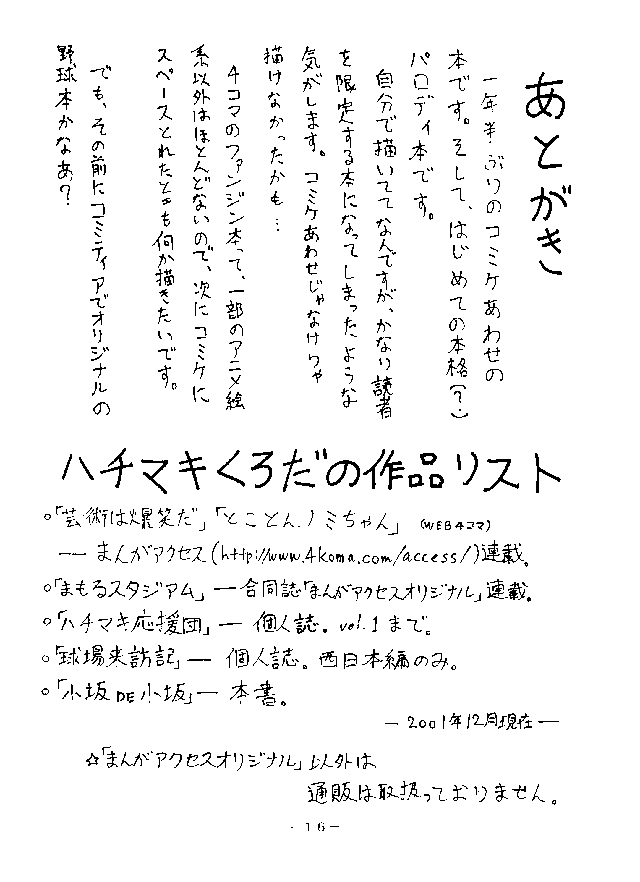 あとがき
一年半ぶりのコミケあわせの
本です。そして、はじめての本格(？)
パロディ本です。
自分で描いててなんですが、かなり読者
を限定する本になってしまったような
気がします。コミケあわせじゃなけりゃ
描けなかったかも…
4コマのファンジン本って、一部のアニメ絵
系以外はほとんどないので、次にコミケに
スペースとれたときも何か描きたいです。
でも、その前にコミティアでオリジナルの
野球本かなあ？
ハチマキくろだの作品リスト
○「芸術は爆笑だ」「とことんノミちゃん」(WEB4コマ)
── まんがアクセス(http://www.4koma.com/access/)連載。
○「まもるスタジアム」─ 合同誌「まんがアクセスオリジナル」連載。
○「ハチマキ応援団」─ 個人誌。vol.1まで。
○「球場来訪記」─ 個人誌。西日本編のみ。
○「小坂DE小坂」─ 本書。
─ 2001年12月現在 ─
☆「まんがアクセスオリジナル」以外は
通販は取扱っておりません。
-16-